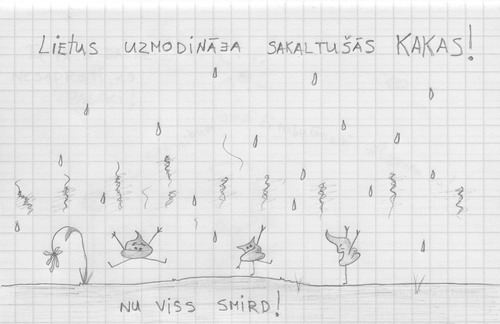 LIETUS UZMODINĀJA SAKALTUŠĀS KAKAS!
NU VISS SMIRD!